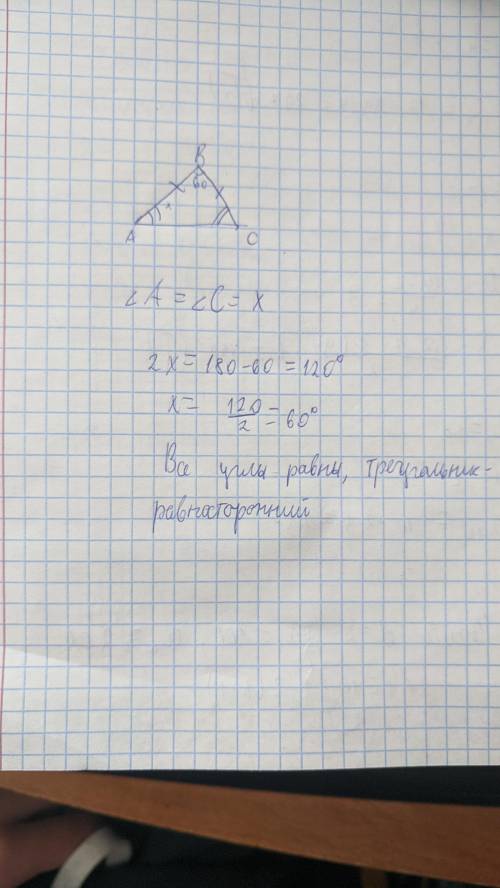 B
60
x
A
C
∠A = ∠C = x
2x = 180-60 = 120°
x = 120/2 = 60°
Все углы равны, треугольник-
равносторонний